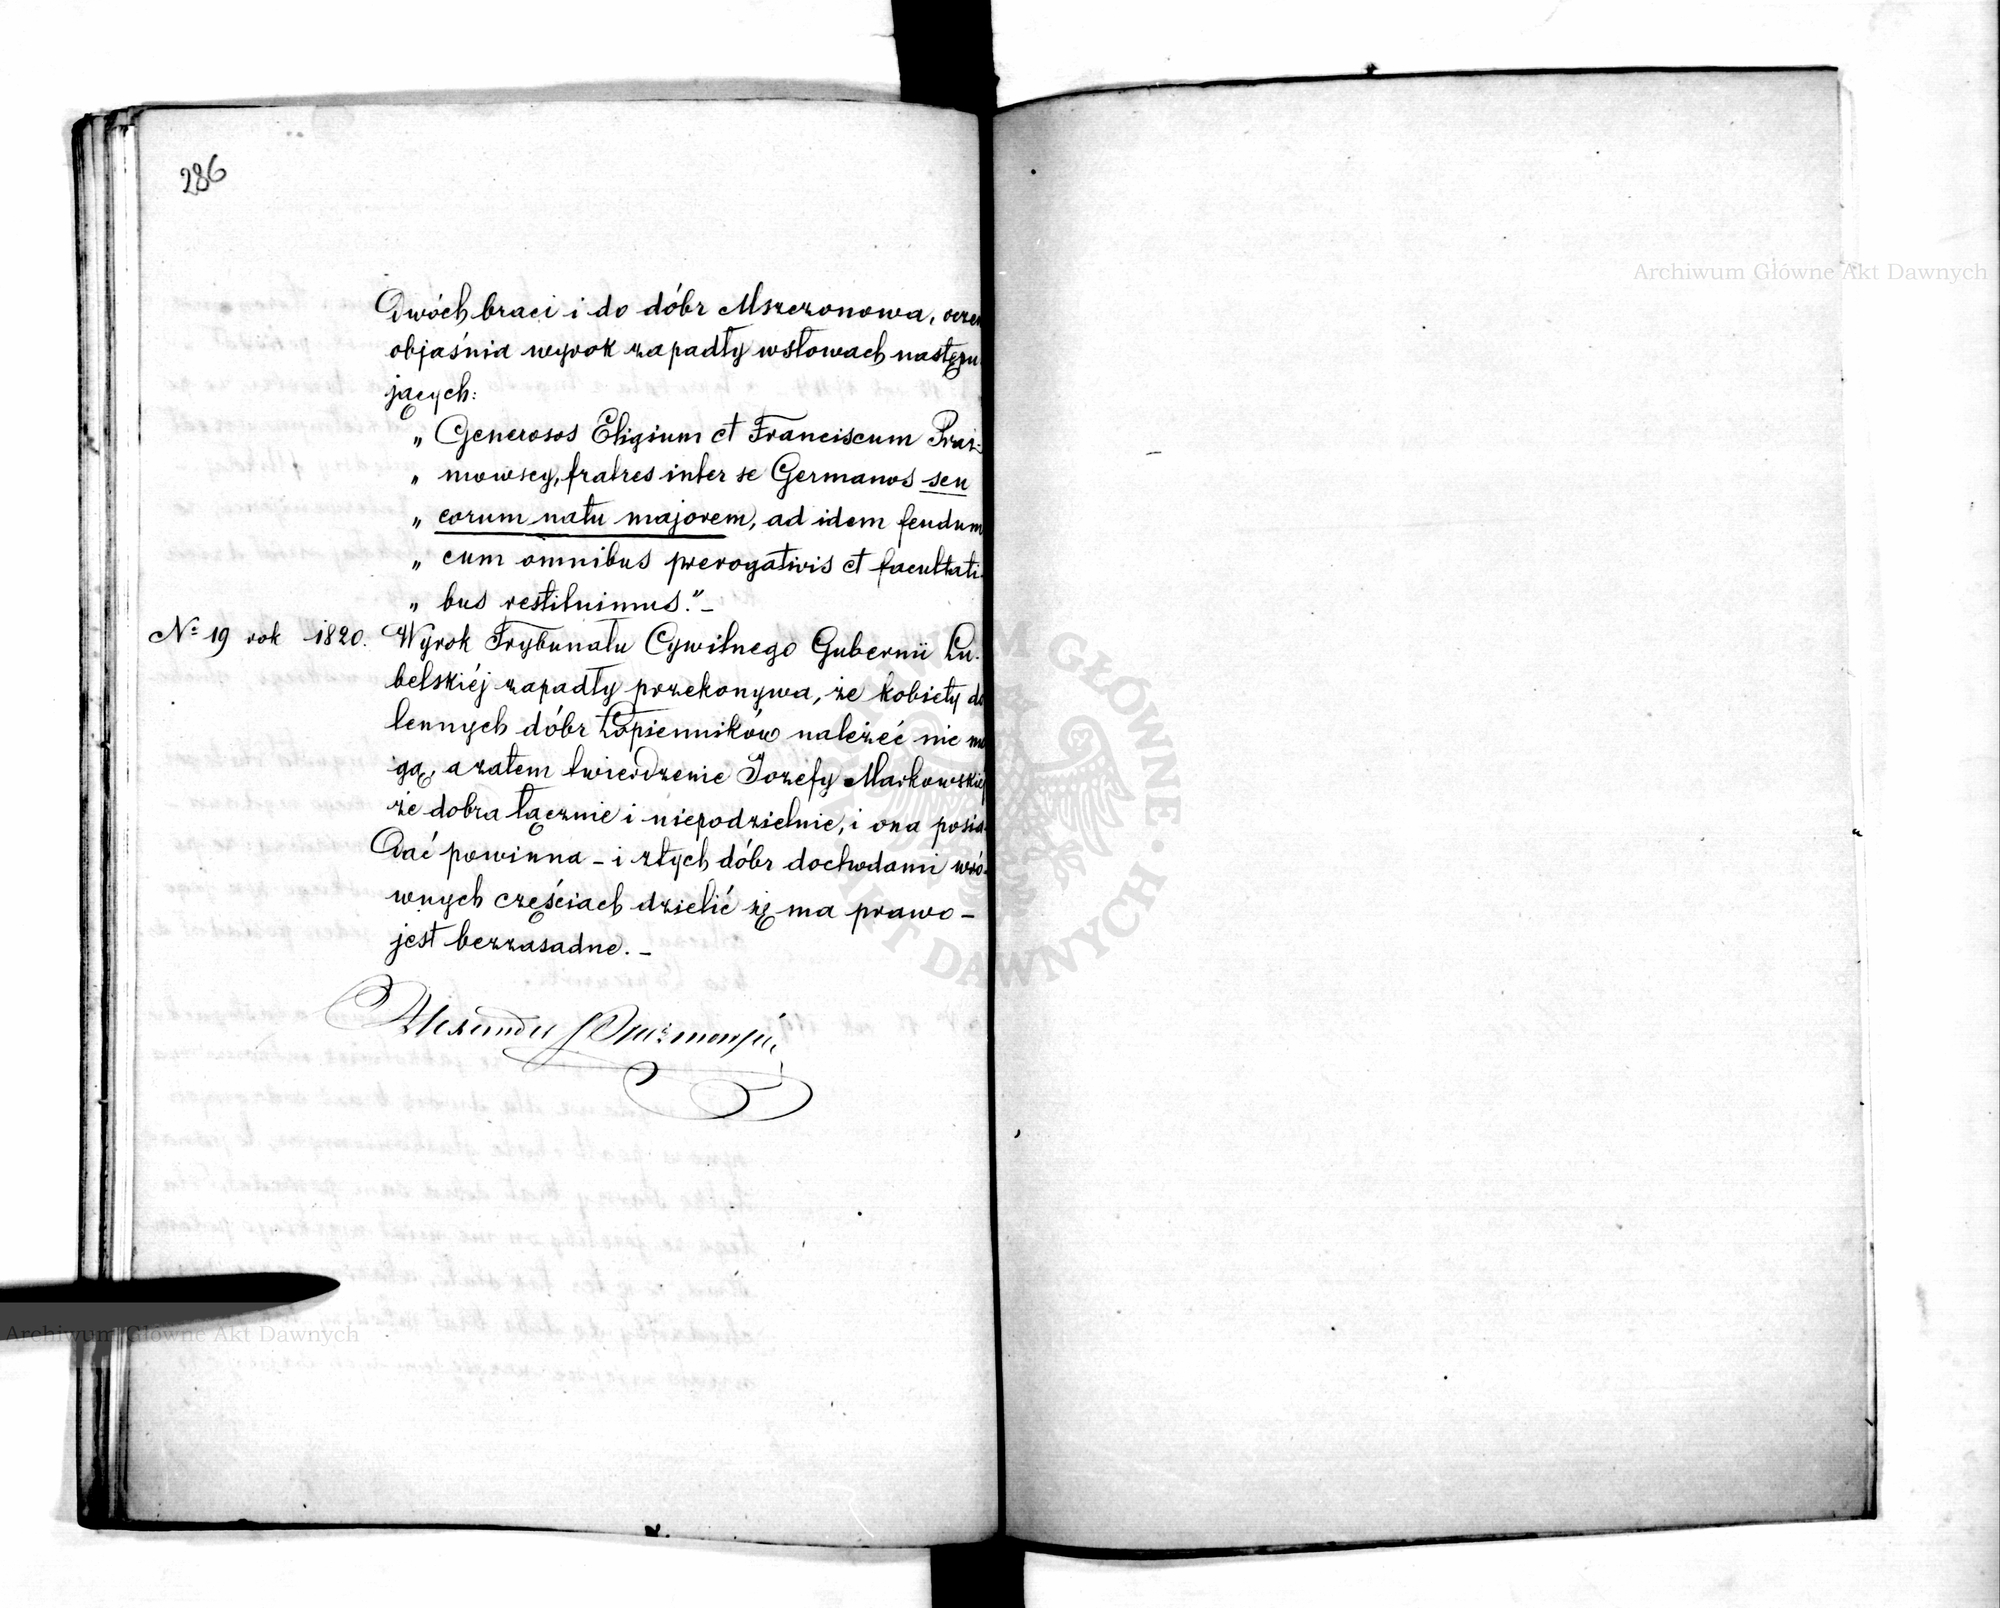 286
Dwóch braci i do dóbr Mszczonowa, oczem
objaśnia wyrok zapadły wsłowach następu-
jących:
„ Generosos Eligium et Franciscum Praż-
„ mowscy, fratres inter se Germanos seu
„ eorum natu majorem, ad idem feudum
„ cum omnibus prerogativis et facultati-
„ bus restituimus." –
№ 19 rok 1820. Wyrok Trybunału Cywilnego Gubernii Lu-
belskiéj zapadły przekonywa, że kobiety do
lennych dóbr Łopienników należeć nie mo-
gą, a zatem twierdzenie Jozefy Markowskiéj
że dobra łącznie i niepodzielnie, i ona posia-
dać powinna – i ztych dóbr dochodami wró-
wnych częściach dzielić się ma prawo –
jest bezzasadne. –
Alexander Prażmowski
Archiwum Główne Akt Dawnych
Archiwum Główne Akt Dawnych
M GŁÓWNE · AKT DAWNYCH ·